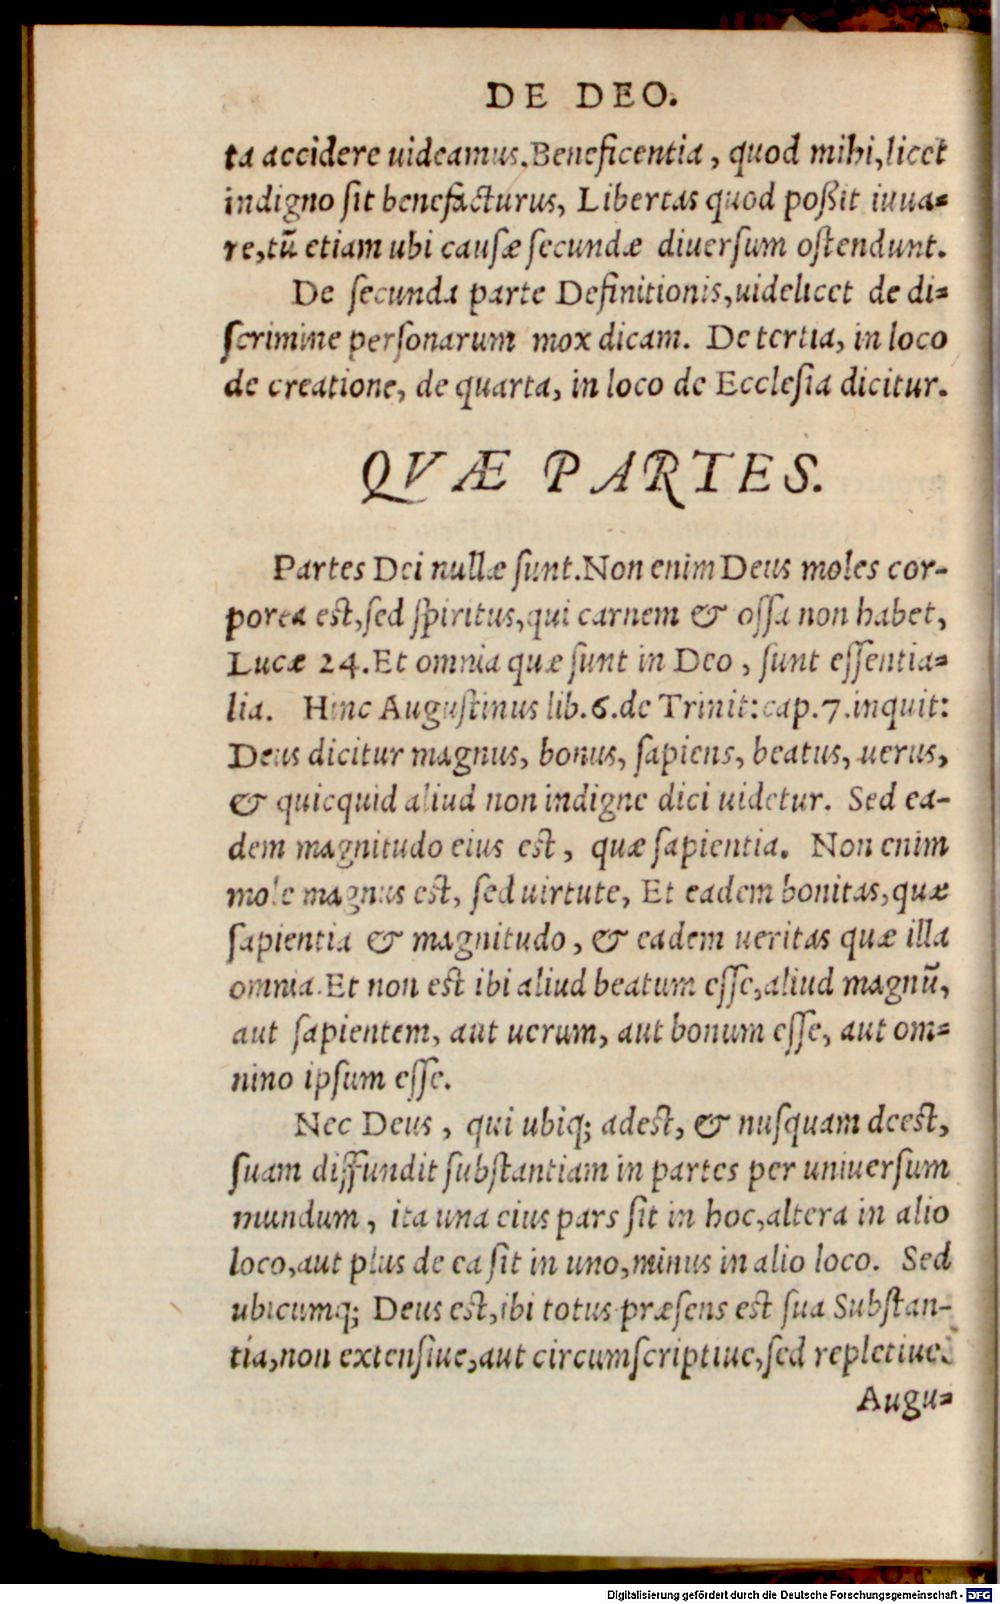 DE DEO.
ta accidere uideamus. Beneficentia, quod mihi, licet
indigno sit benefacturus, Libertas quod poßit iuua-
re, tũ etiam ubi causæ secundæ diuersum ostendunt.
De secunda parte Definitionis, uidelicet de di-
scrimine personarum mox dicam. De tertia, in loco
de creatione, de quarta, in loco de Ecclesia dicitur.
QVÆ PARTES.
Partes Dei nullæ sunt. Non enim Deus moles cor-
porea est, sed spiritus, qui carnem & ossa non habet,
Lucæ 24. Et omnia quæ sunt in Deo, sunt essentia-
lia. Hinc Augustinus lib. 6. de Trinit: cap. 7. inquit:
Deus dicitur magnus, bonus, sapiens, beatus, uerus,
& quicquid aliud non indigne dici uidetur. Sed ea-
dem magnitudo eius est, quæ sapientia. Non enim
mole magnus est, sed uirtute, Et eadem bonitas, quæ
sapientia & magnitudo, & eadem ueritas quæ illa
omnia. Et non est ibi aliud beatum esse, aliud magnũ,
aut sapientem, aut uerum, aut bonum esse, aut om-
nino ipsum esse.
Nec Deus, qui ubiq; adest, & nusquam deest,
suam diffundit substantiam in partes per uniuersum
mundum, ita una eius pars sit in hoc, altera in alio
loco, aut plus de ea sit in uno, minus in alio loco. Sed
ubicumq; Deus est, ibi totus præsens est sua Substan-
tia, non extensiue, aut circumscriptiue, sed repletiue.
Augu-
Digitalisierung gefördert durch die Deutsche Forschungsgemeinschaft - DFG